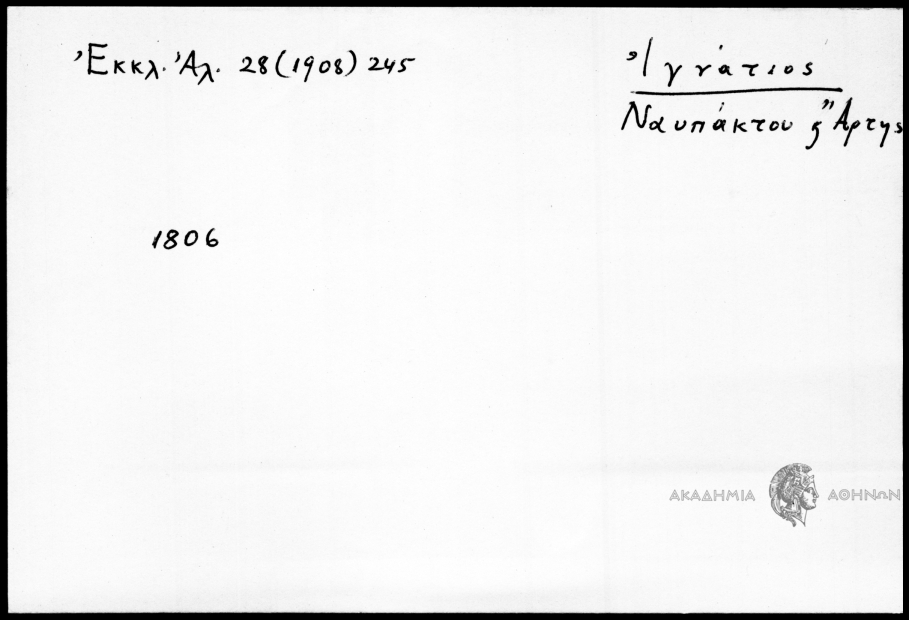 Ἐκκλ. Ἀλ. 28 (1908) 245
Ἰγνάτιος
Ναυπάκτου ϗ Ἄρτης
1806
ΑΚΑΔΗΜΙΑ ΑΘΗΝΩΝ